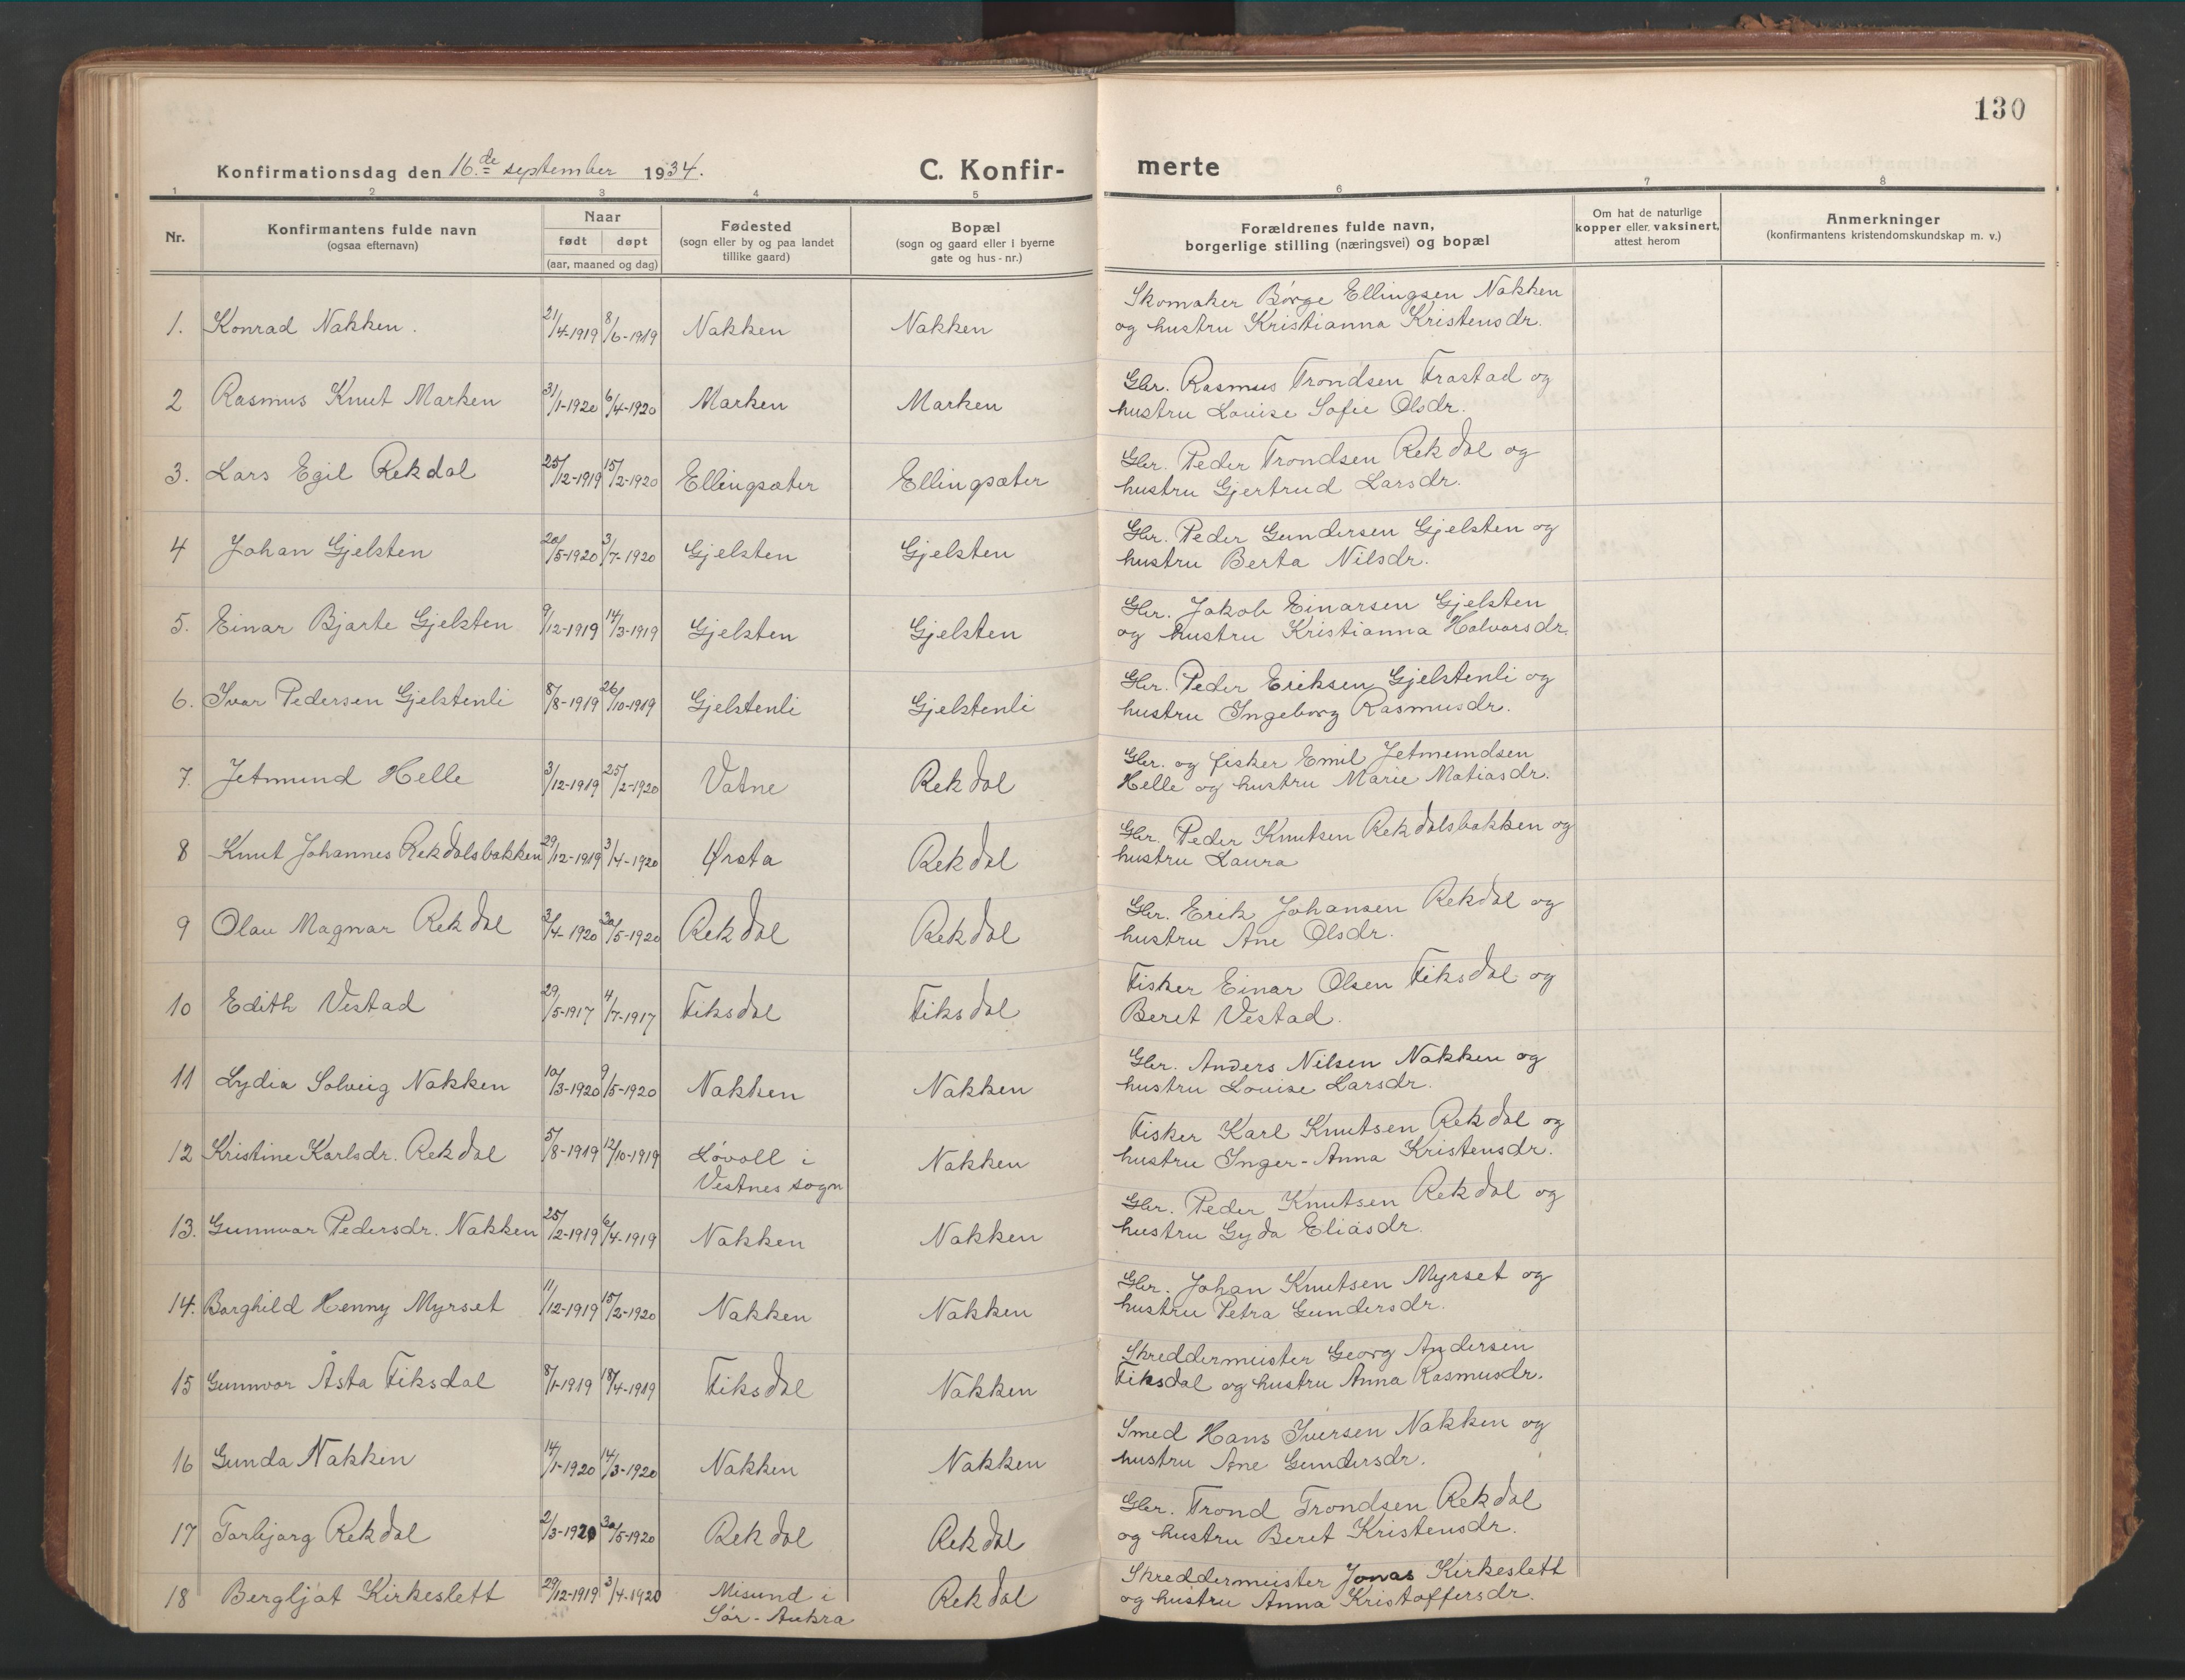 130
Konfirmationsdag den 16.de september 1934.
C. Konfir-
merte
1 2 3 4 5 6 7 8
Nr.
Konfirmantens fulde navn
(ogsaa efternavn)
Naar
født døpt
(aar, maaned og dag)
Fødested
(sogn eller by og paa landet
tillike gaard)
Bopæl
(sogn og gaard eller i byerne
gate og hus-nr.)
Forældrenes fulde navn,
borgerlige stilling (næringsvei) og bopæl
Om hat de naturlige
kopper eller vaksinert,
attest herom
Anmerkninger
(konfirmantens kristendomskundskap m. v.)
1. Konrad Nakken. 21/4-1919 8/6-1919 Nakken Nakken
Skomaker Børge Ellingsen Nakken
og hustru Kristianna Kristensdr.
2 Rasmus Knut Marken 31/1-1920 6/4-1920 Marken Marken
Gbr. Rasmus Trondsen Frastad og
hustru Louise Sofie Olsdr.
3. Lars Egil Rekdal 25/12-1919 15/2-1920 Ellingsæter Ellingsæter
Gbr. Peder Trondsen Rekdal og
hustru Gjertrud Larsdr.
4 Johan Gjelsten 20/5-1920 3/7-1920 Gjelsten Gjelsten
Gbr. Peder Gundersen Gjelsten og
hustru Berta Nilsdr.
5. Einar Bjarte Gjelsten 9/12-1919 14/3-1919 Gjelsten Gjelsten
Gbr. Jakob Einarsen Gjelsten
og hustru Kristianna Halvorsdr.
6. Ivar Pedersen Gjelstenli 8/8-1919 26/10-1919 Gjelstenli Gjelstenli
Gbr. Peder Eriksen Gjelstenli og
hustru Ingeborg Rasmusdr.
7. Jetmund Helle 3/12-1919 25/2-1920 Vatne Rekdal
Gbr. og fisker Emil Jetmundsen
Helle og hustru Marie Matiasdr.
8 Knut Johannes Rekdalsbakken 29/12-1919 3/4-1920 Ørsta Rekdal
Gbr. Peder Knutsen Rekdalsbakken og
hustru Laura
9 Olav Magnar Rekdal 3/4-1920 30/5-1920 Rekdal Rekdal
Gbr. Erik Johansen Rekdal og
hustru Ane Olsdr.
10 Edith Vestad 29/5-1917 4/7-1917 Fiksdal Fiksdal
Fisker Einar Olsen Fiksdal og
Beret Vestad.
11 Lydia Solveig Nakken 10/3-1920 9/5-1920 Nakken Nakken
Gbr. Anders Nilsen Nakken og
hustru Louise Larsdr.
12 Kristine Karlsdr. Rekdal 5/8-1919 12/10-1919 Løvoll i Nakken
Vestnes sogn
Fisker Karl Knutsen Rekdal og
hustru Inger-Anna Kristensdr.
13. Gunnvar Pedersdr. Nakken 25/2-1919 6/4-1919 Nakken Nakken
Gbr. Peder Knutsen Rekdal og
hustru Gyda Eliasdr.
14. Borghild Henny Myrset 11/12-1919 15/2-1920 Nakken Nakken
Gbr. Johan Knutsen Myrset og
hustru Petra Gundersdr.
15 Gunnvor Åsta Fiksdal 8/1-1919 18/4-1919 Fiksdal Nakken
Skreddermeister Georg Andersen
Fiksdal og hustru Anna Rasmusdr.
16 Gunda Nakken 14/1-1920 14/3-1920 Nakken Nakken
Smed Hans Iversen Nakken og
hustru Ane Gundersdr.
17 Torbjørg Rekdal 2/3-1920 30/5-1920 Rekdal Rekdal
Gbr. Trond Trondsen Rekdal
og hustru Beret Kristensdr.
18 Bergljót Kirkeslett 29/12-1919 3/4-1920 Misund i Rekdal
Sør-Aukra
Skreddermeister Jonas Kirkeslett
og hustru Anna Kristoffersdr.